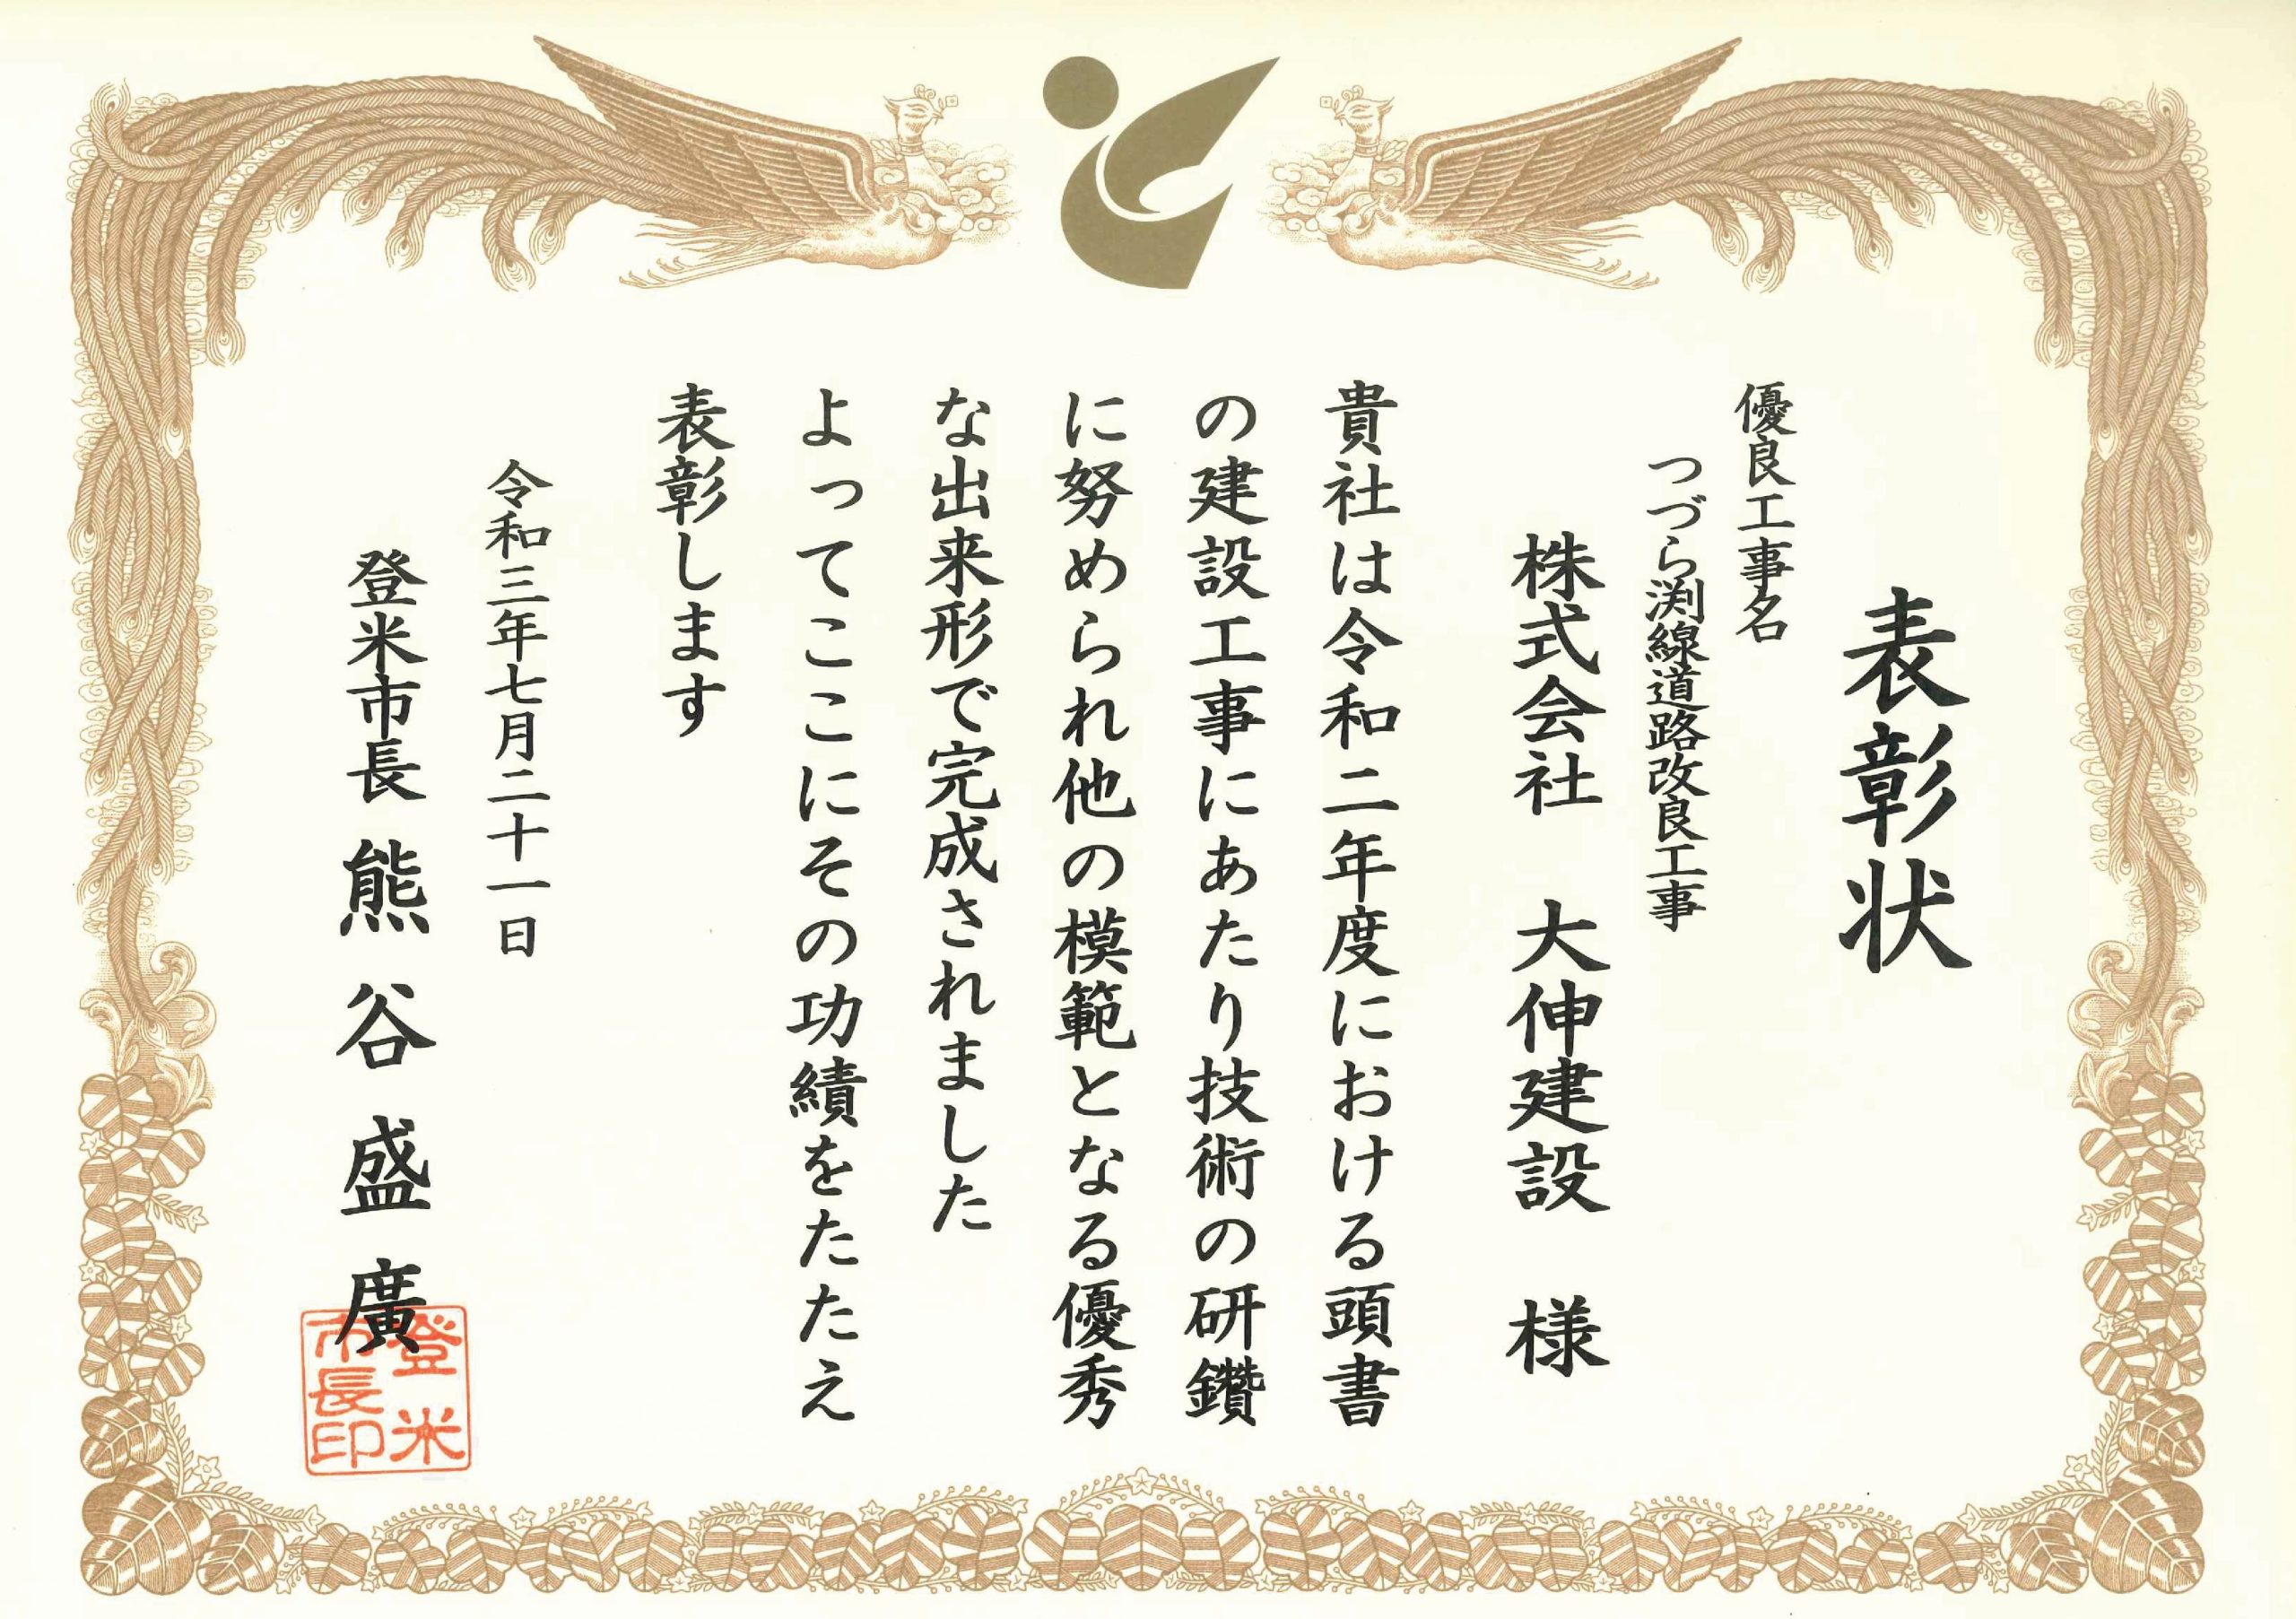 表彰状
優良工事名
つづら渕線道路改良工事
株式会社 大伸建設 様
貴社は令和二年度における頭書
の建設工事にあたり技術の研鑽
に努められ他の模範となる優秀
な出来形で完成されました
よってここにその功績をたたえ
表彰します
令和三年七月二十一日
登米市長 熊谷盛廣
登米
市長印